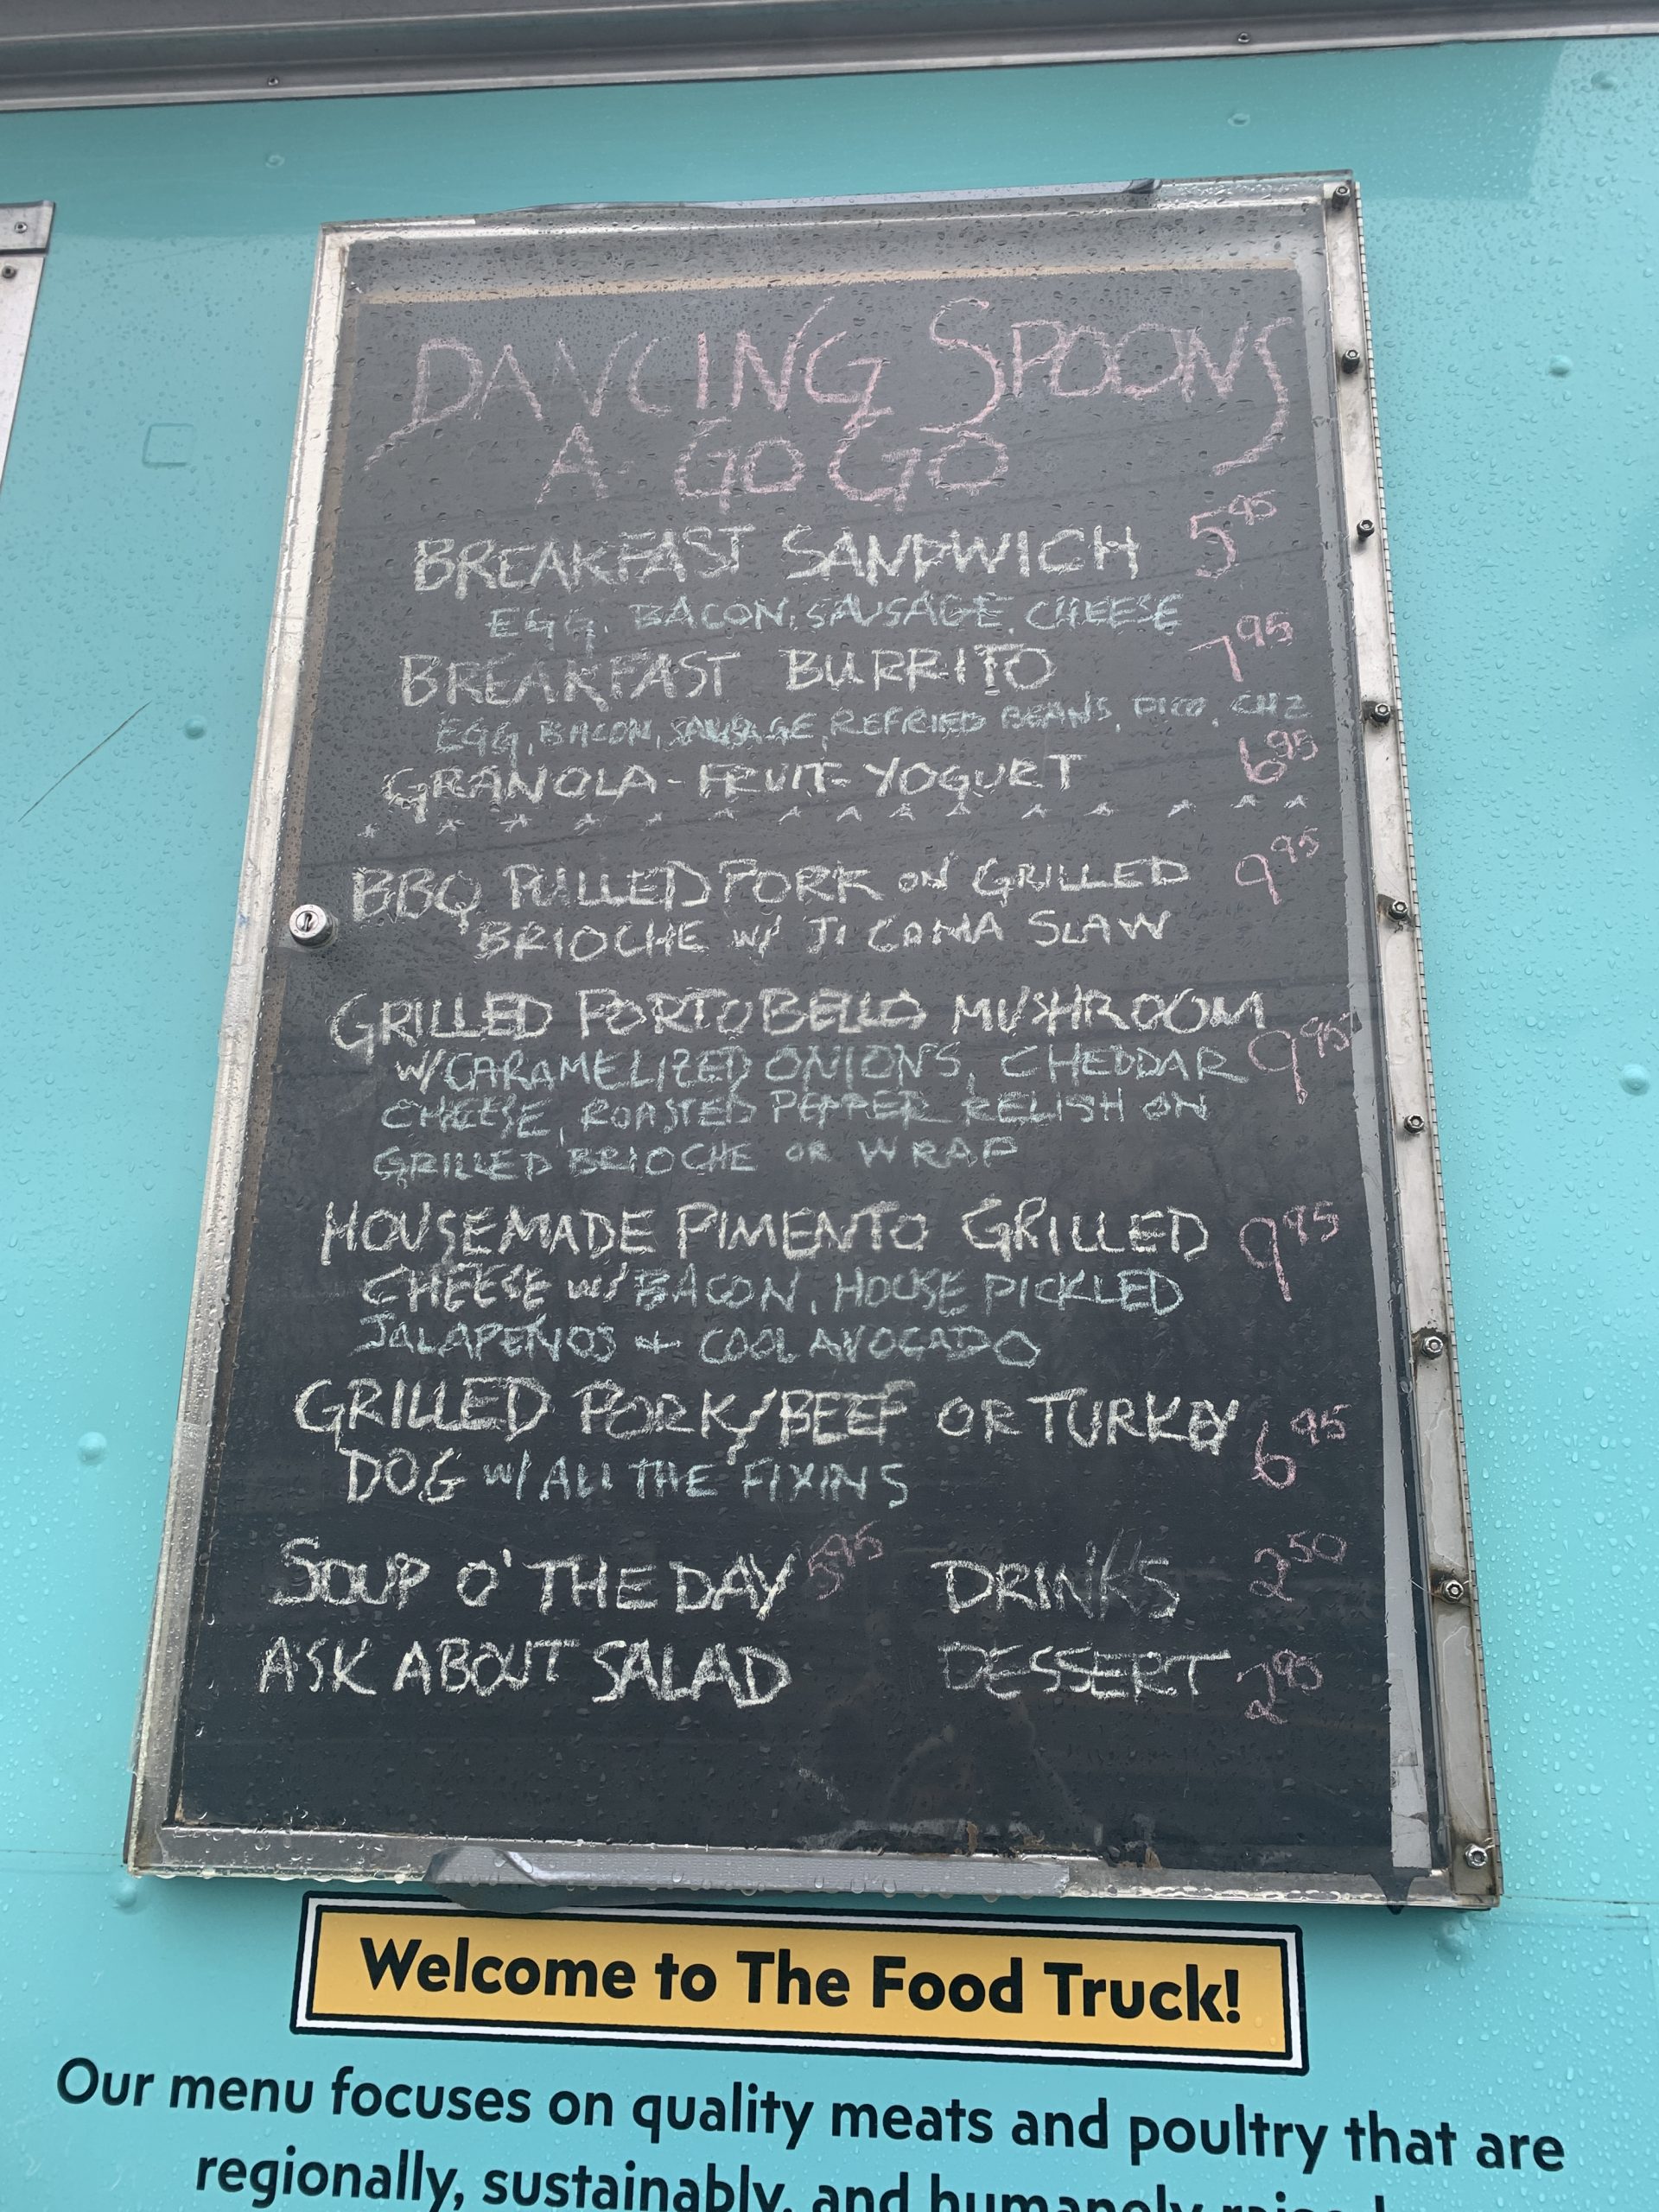 DANCING SPOONS
A GO GO
BREAKFAST SANDWICH 5 95
EGG, BACON, SAUSAGE, CHEESE
BREAKFAST BURRITO 7 95
EGG, BACON, SAUSAGE, REFRIED BEANS, PICO, CHZ
GRANOLA-FRUIT-YOGURT 6 95
BBQ PULLED PORK ON GRILLED 9 95
BRIOCHE W/ JICAMA SLAW
GRILLED PORTOBELLO MUSHROOM
W/CARAMELIZED ONIONS, CHEDDAR 9 95
CHEESE, ROASTED PEPPER RELISH ON
GRILLED BRIOCHE OR WRAP
HOUSEMADE PIMENTO GRILLED 9 95
CHEESE W/ BACON, HOUSE PICKLED
JALAPEÑOS + COOL AVOCADO
GRILLED PORK/BEEF OR TURKEY 6 95
DOG W/ ALL THE FIXINS
SOUP O' THE DAY 5 95 DRINKS 2 50
ASK ABOUT SALAD DESSERT 2 95
Welcome to The Food Truck!
Our menu focuses on quality meats and poultry that are
regionally, sustainably, and humanely raised